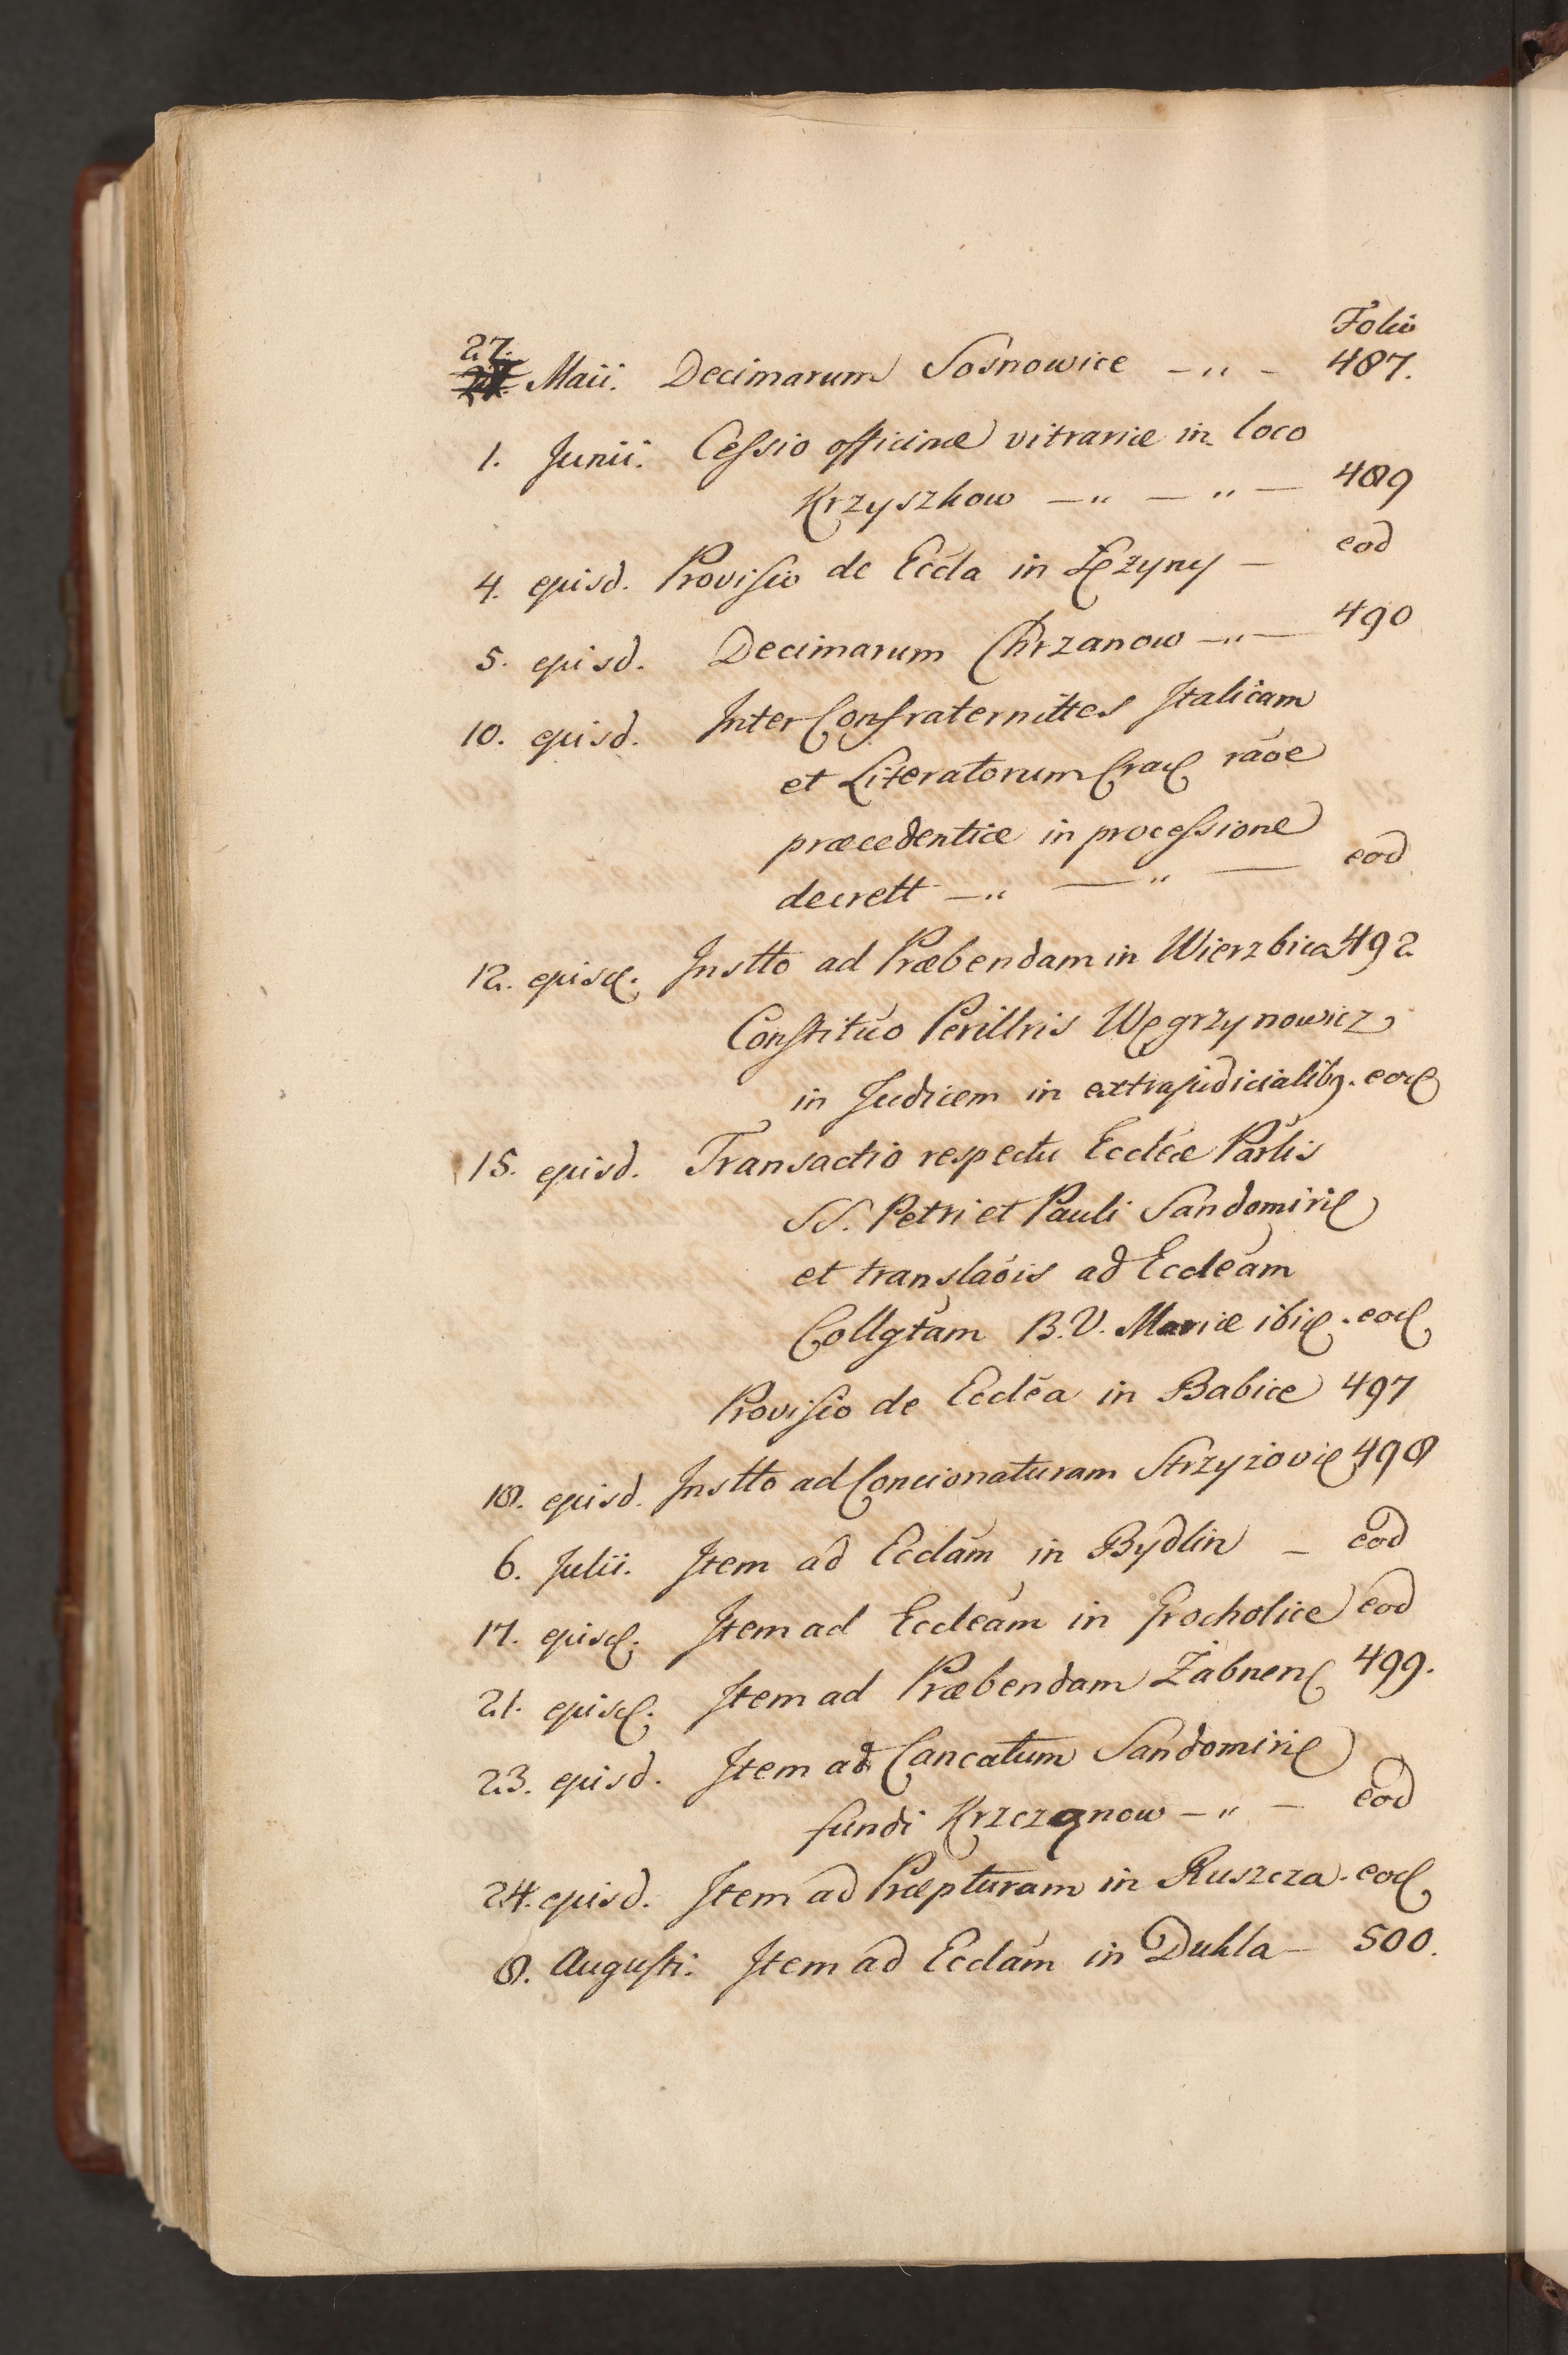 Folio
27.
27. Maii. Decimarum Sosnowice — „ - 487.
1. Junii. Cessio officinæ vitrariæ in loco
Krzyszkow — „ — „ — 489
4. ejusd. Provisio de Eccła in Łężyny — eod
5. ejusd. Decimarum Chrzanow — „ — 490
10. ejusd. Inter Confraternittes Italicam
et Literatorum Crac rãoe
præcedentiæ in processione
decrett — „ — „ — eod
12. ejusd. Instto ad Præbendam in Wierzbica 492
Constitũo Perillris Węgrzynowicz
in Judicem in extrajudicialibq. eod
15. ejusd. Transactio respectu Eccleæ Parlis
SS. Petri et Pauli Sandomirie
et translaõis ad Eccleam
Collgtam B. V. Mariæ ibid. eod
Provisio de Ecclea in Babice 497
18. ejusd. Instto ad Concionaturam Strzyżovie 498
6. Julii. Item ad Ecclam in Bydlin — eod
17. ejusd. Item ad Eccleam in Grocholice eod
21. ejusd. Item ad Præbendam Żabnen 499.
23. ejusd. Item ad Cancatum Sandomirie
fundi Krzczonow — „ — eod
24. ejusd. Item ad Præpturam in Ruszcza. eod
8. Augusti. Item ad Ecclam in Dukla — 500.